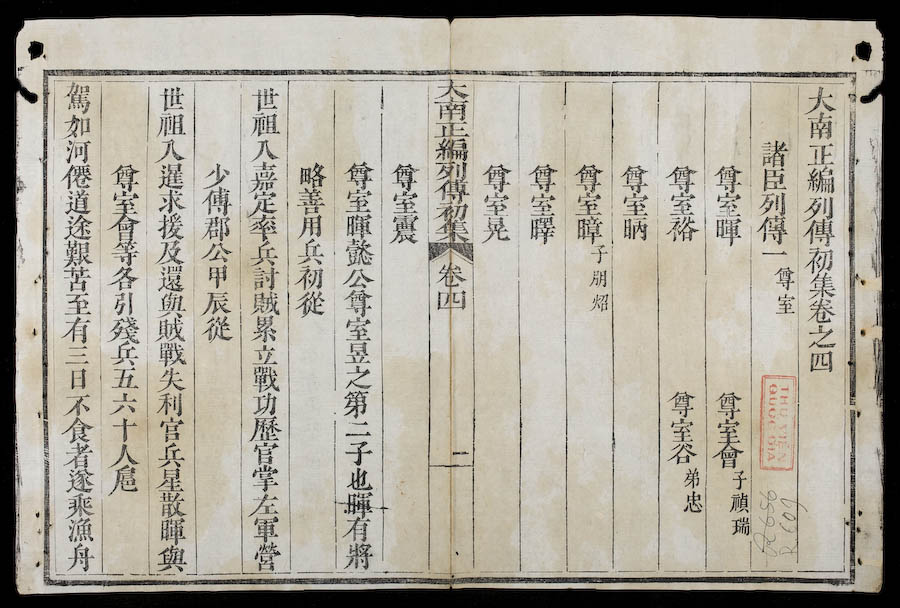 大南正編列傳初集卷之四
諸臣列傳一 尊室
尊室暉 尊室會 子禎瑞
尊室裕 尊室谷 弟忠
尊室昞
尊室暲 子朋炤
尊室曎
尊室晃
大南正編列傳初集 卷四 一
尊室震
尊室暉懿公尊室昱之第二子也暉有將
略善用兵初從
世祖入嘉定率兵討賊累立戰功歷官掌左軍營
少傅郡公甲辰從
世祖入暹求援及還與賊戰失利官兵星散暉與
尊室會等各引殘兵五六十人扈
駕如河僊道途艱苦至有三日不食者遂乘漁舟
THƯ VIỆN
QUỐC GIA